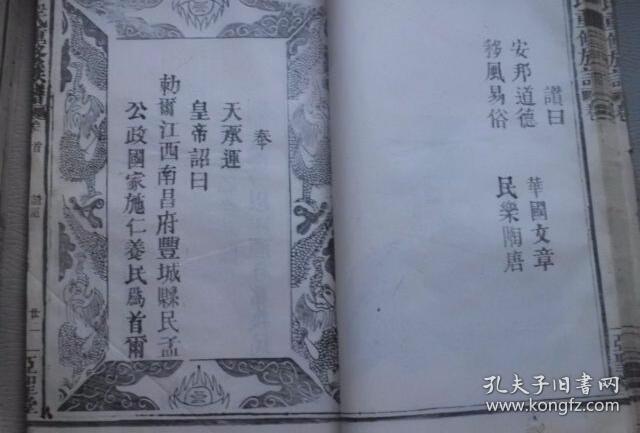 讚曰
安邦道德 華國文章
移風易俗 民樂陶唐
奉
天承運
皇帝詔曰
勅爾江西南昌府豐城縣民孟
公政國家施仁養民爲首爾
卷首
廿一
亞聖堂
孔夫子旧书网
www.kongfz.com